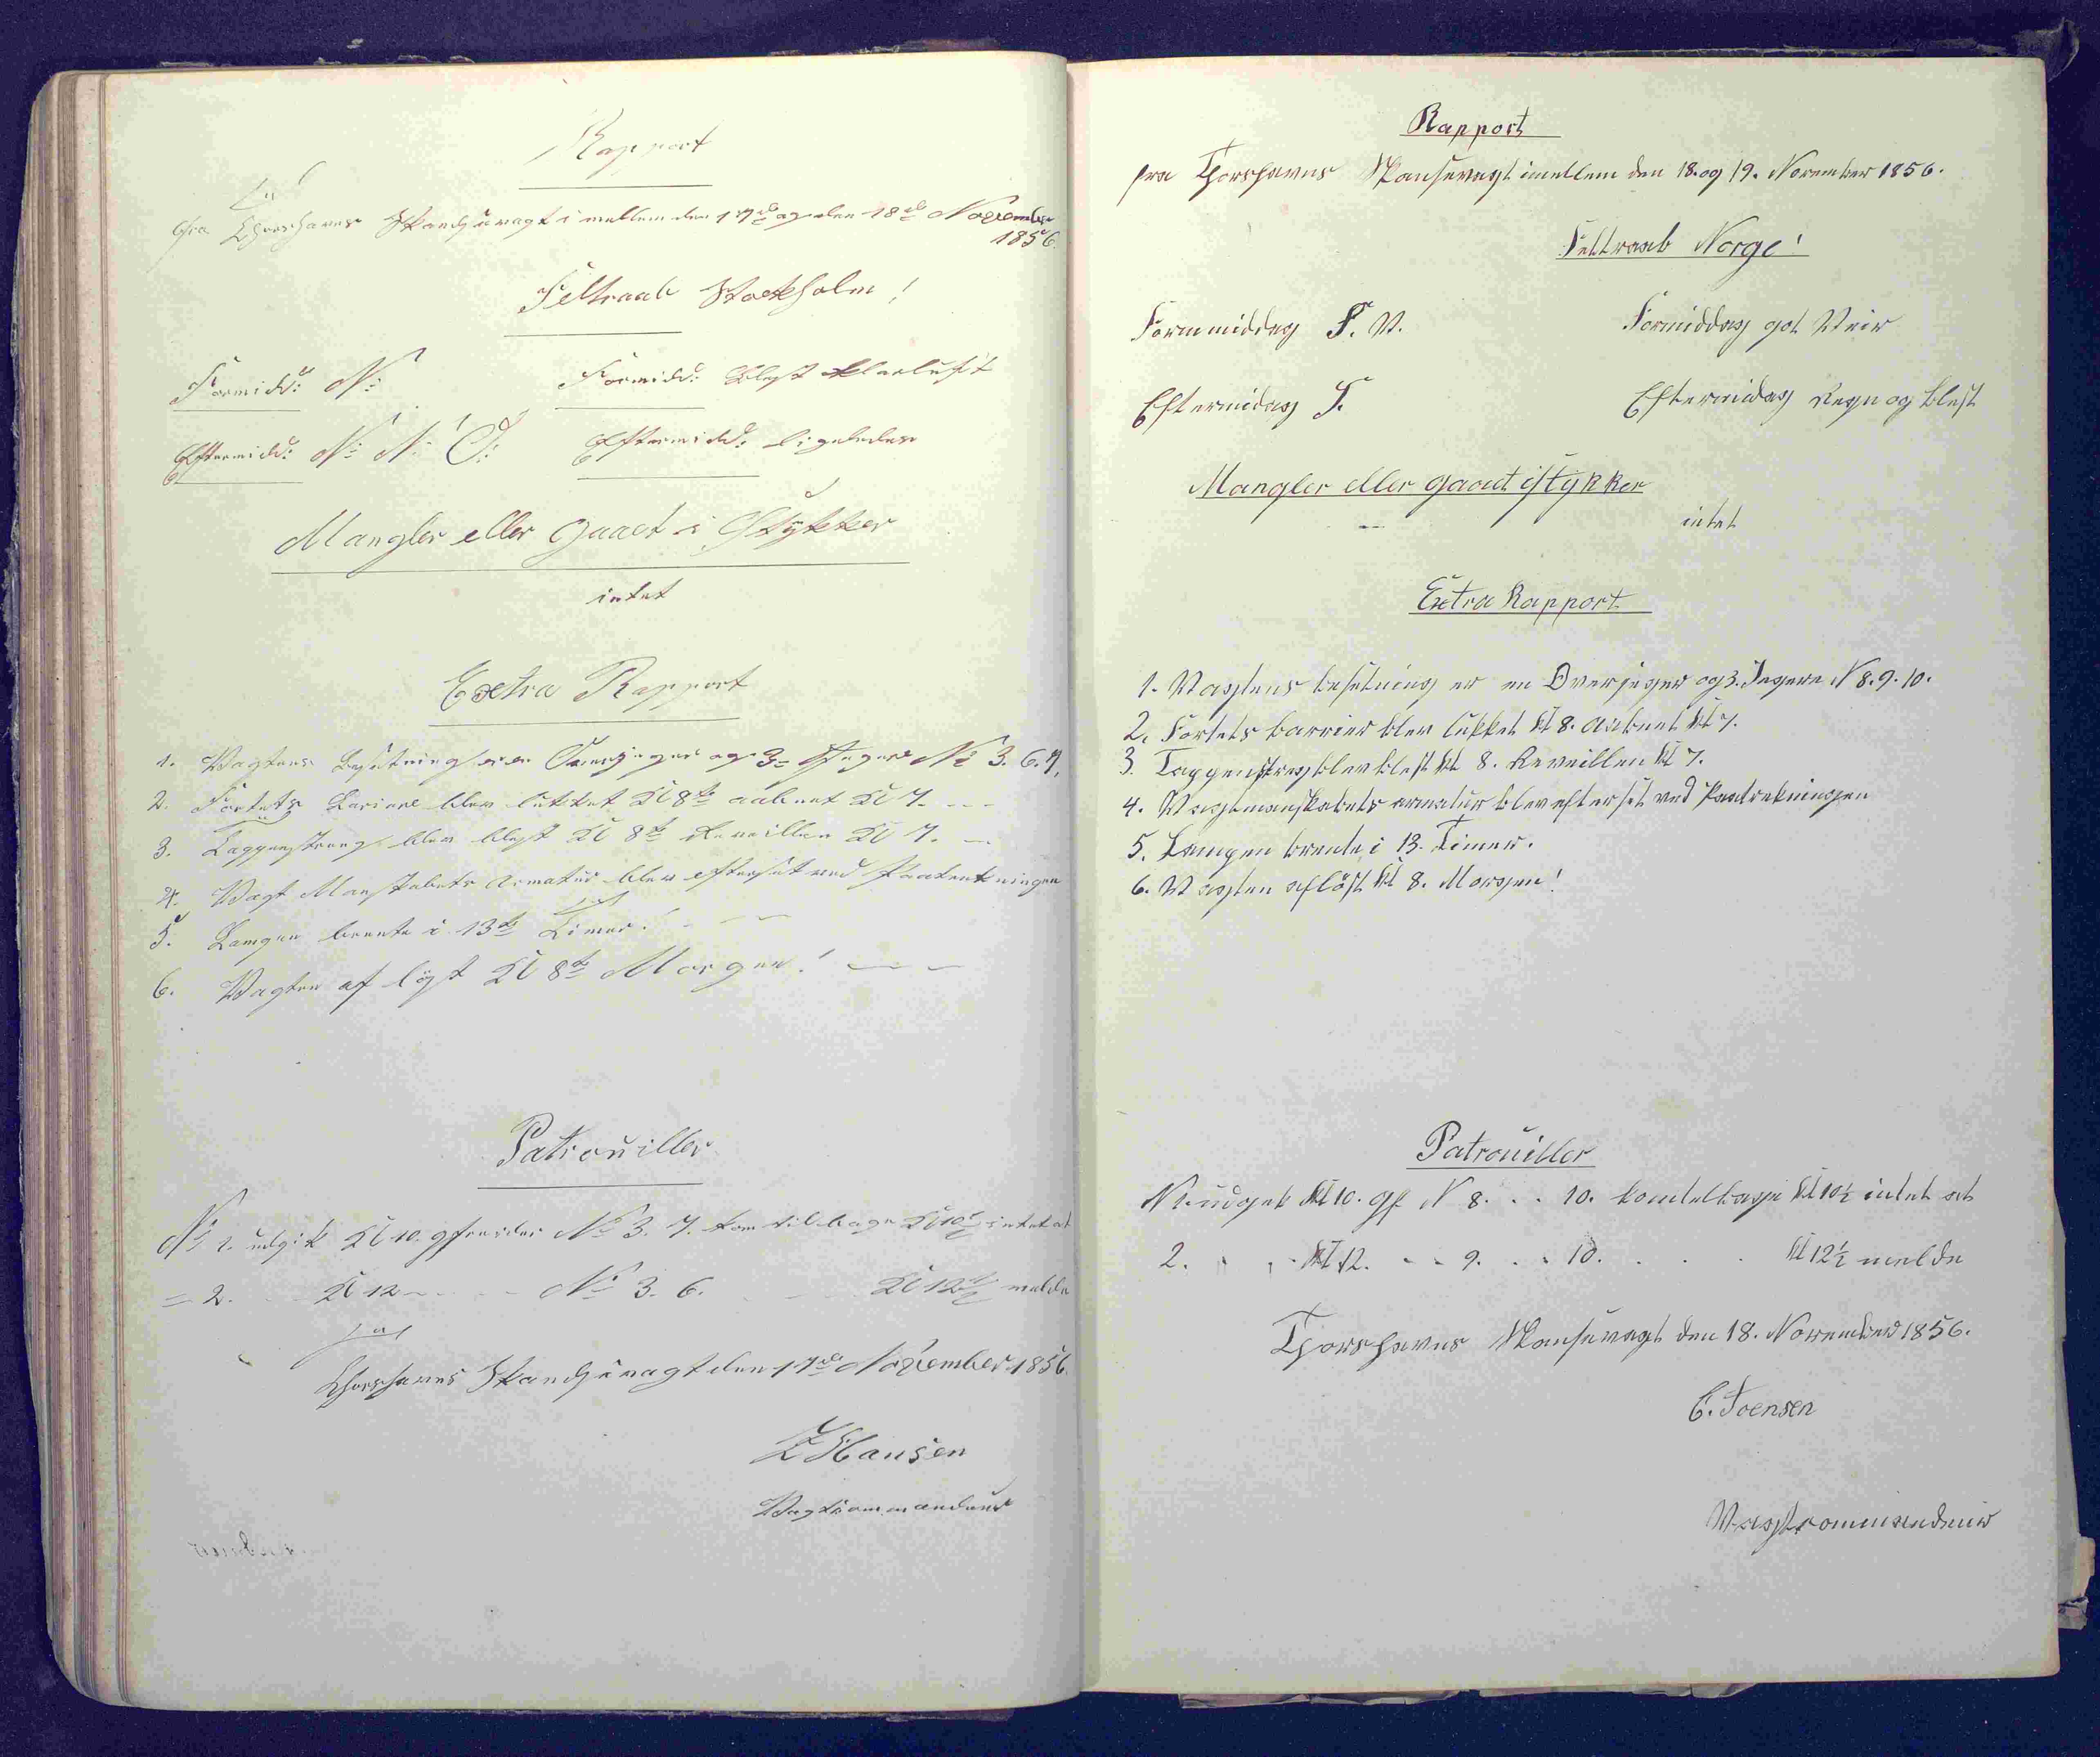 Rapport
fra Thorshavns Skandsevagt imellem den 17de og den 18de November
1856.
Feltraab Stockholm!
Formidd: N: Formidd: blæst klarluft
Eftermidd: N: N: O: Eftermidd: ligeledes
Mangler eller Gaaet i Stykker
intet
Extra Rapport
1. Vagtens Besætning er en Overjæger og 3= Jægere No 3. 6. 7.
2. Fortets Bariere blev lukket Kl 8te aabnet Kl 7.
3. Tappenstreng blev blæst Kl 8te Reveillen Kl 7.
4. Vagt Manskabets Armatur blev efterset ved Paatrækningen
5. Lampen brente i 13te Timer!
6. Vagten afløst Kl 8te Morgen!
Patrouiller
No 1. udgik Kl 10. gefreider No 3. 7. kom tilbage Kl 10½ intet at
= 2. Kl 12 No 3. 6. Kl 12½ melde
Thorshavns Skandsevagt den 17de November 1856.
Hansen
Vagtcommandeur
Rapport
fra Thorshavns Skansevagt imellem den 18. og 19. November 1856.
Feltraab Norge!
Formmiddag S. V. Formiddag got Veir
Eftermidag S. Eftermidag Regn og blest
Mangler eller gaaet istykker
intet
Extra Rapport
1. Vagtens besetning er en Overjeger og 3. Jegere N 8. 9. 10.
2. Fortets barrier blev lukket kl 8. aabnet kl 7.
3. Tappenstreg blev blest kl 8. Reveillen kl 7.
4. Vagtmanskabets armatur blev efterset ved Paatrekningen
5. Lampen brente i 13. Timer.
6. Vagten afløst kl 8. Morgen!
Patrouiller
N 1. udgik kl 10. gf N 8. . . 10. kom telbage kl 10½ intet at
2. . . kl 12. . . 9. . . 10. . . . kl 12½ melde
Thorshavns Skansevagt den 18. November 1856.
C. Joensen
Vagtcommandeur